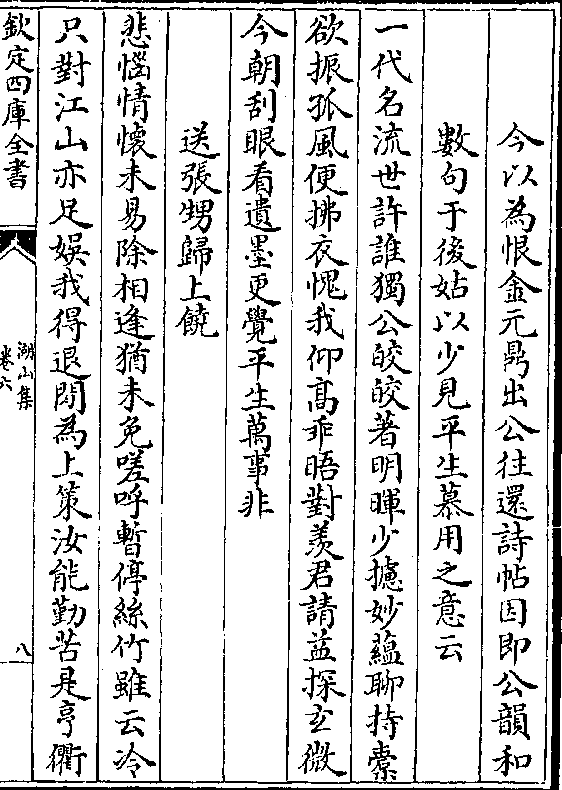 今以為恨金元鼎出公往還詩帖因即公韻和
數句于後姑以少見平生慕用之意云
一代名流世許誰獨公皎皎著明暉少攄妙蘊聊持橐
欲振孤風便拂衣愧我仰高乖晤對羨君請益探𤣥微
今朝刮眼看遺墨更覺平生萬事非
送張甥歸上饒
悲惱情懷未易除相逢猶未免嗟呼暫停絲竹雖云冷
只對江山亦足娛我得退閒為上策汝能勤苦是亨衢
欽定四庫全書
湖山集
卷六
八